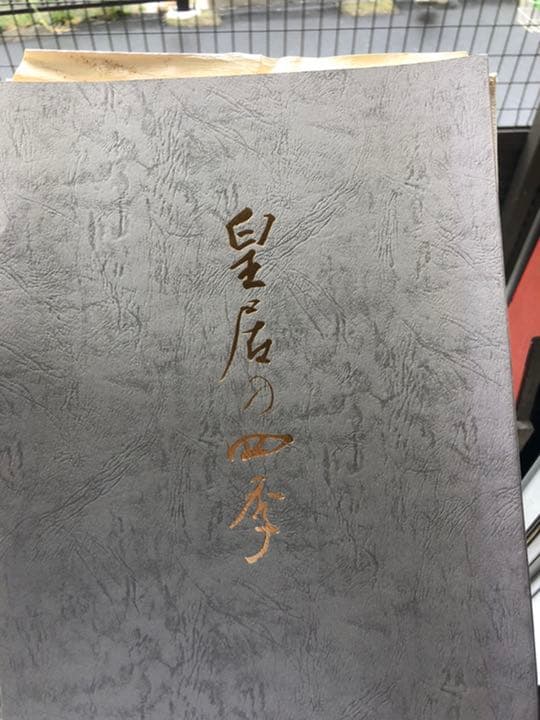 皇居の四季